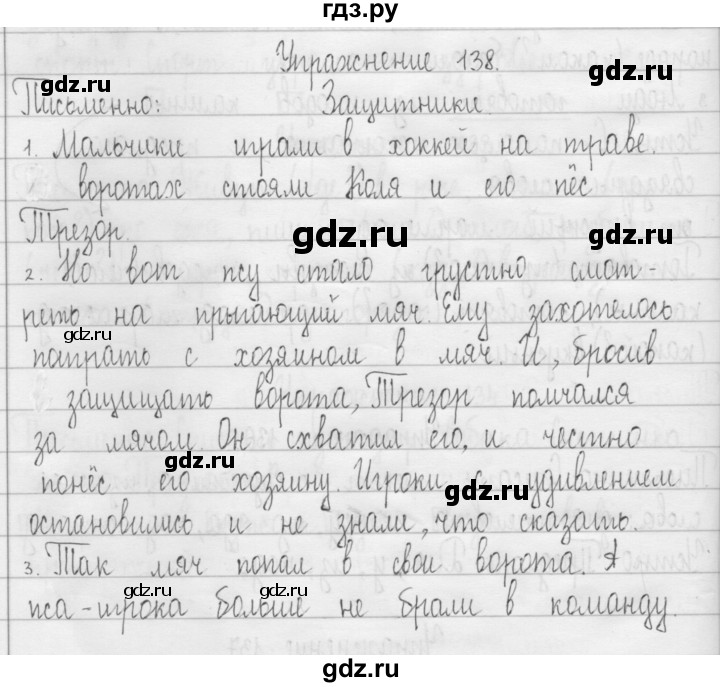 гдз.ру
Упражнение 138.
gdz.ru
gdz.ru
Письменно: Защитники.
1. Мальчики играли в хоккей на траве.
воротах стояли Коля и его пёс
gdz.ru
Трезор.
2. Но вот псу стало грустно смот-
реть на прыгающий мяч. Ему захотелось
gdz.ru
gdz.ru
поиграть с хозяином в мяч. И, бросив
защищать ворота, Трезор помчался
за мячом. Он схватил его, и честно
gdz.ru
понёс его хозяину. Игроки с удивлением
gdz.ru
остановились и не знали, что сказать.
3. Так мяч попал в свои ворота. А
gdz.ru
gdz.ru
пса-игрока больше не брали в команду.
gdz.ru